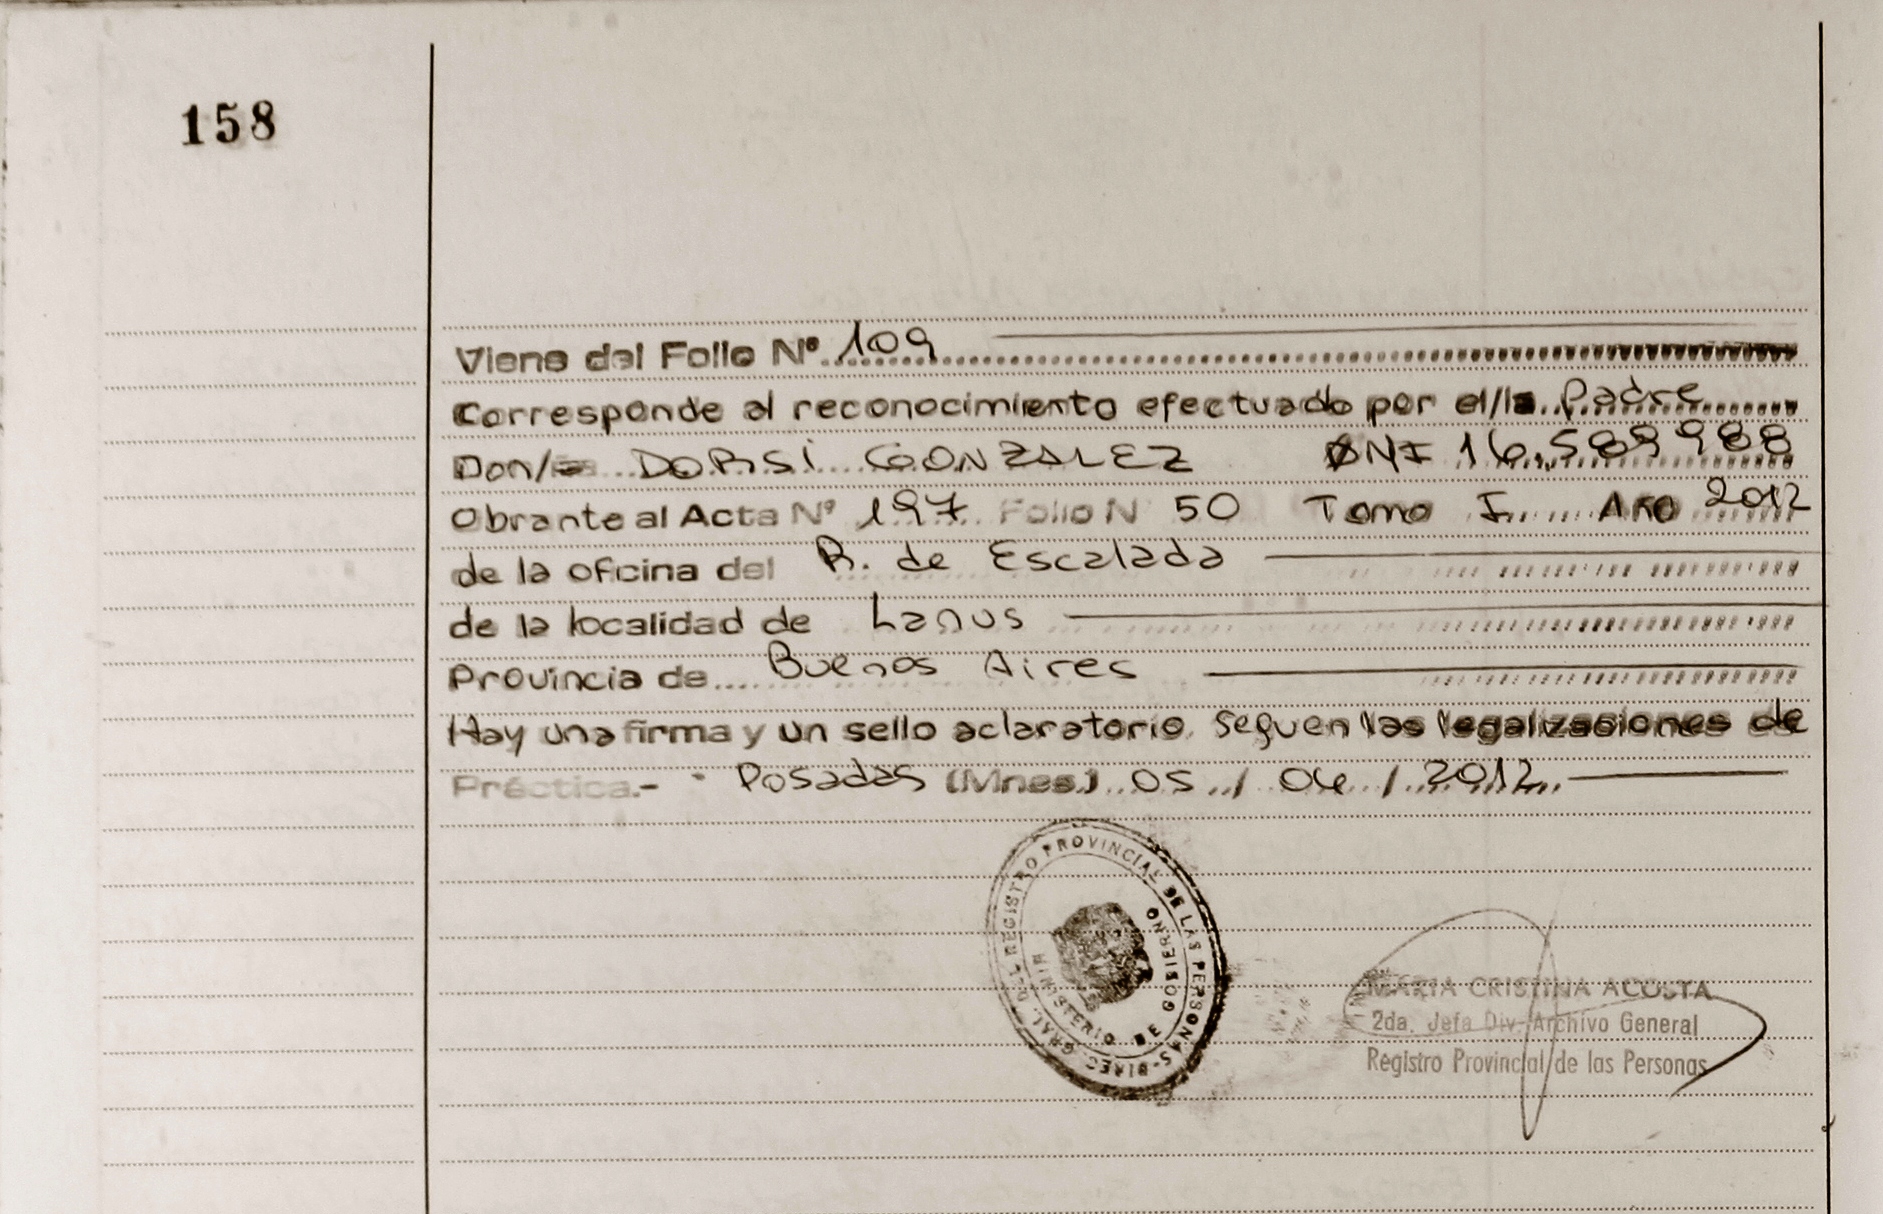 158
Viene del Folio Nº 109
Corresponde al reconocimiento efectuado por el/la Padre
Don/ DORSI GONZALEZ DNI 16.589988
Obrante al Acta Nº 197 Folio N 50 Tomo I Año 2012
de la oficina del R. de Escalada
de la localidad de Lanus
Provincia de Buenos Aires
Hay una firma y un sello aclaratorio. Seguen las legalizasiones de
Práctica.- Posadas (Mnes) 05 / 06 / 2012.
DIREC. GRAL. DEL REGISTRO PROVINCIAL DE LAS PERSONAS-
MINISTERIO DE GOBIERNO
MARIA CRISTINA ACOSTA
2da. Jefa Div. Archivo General
Registro Provincial de las Personas